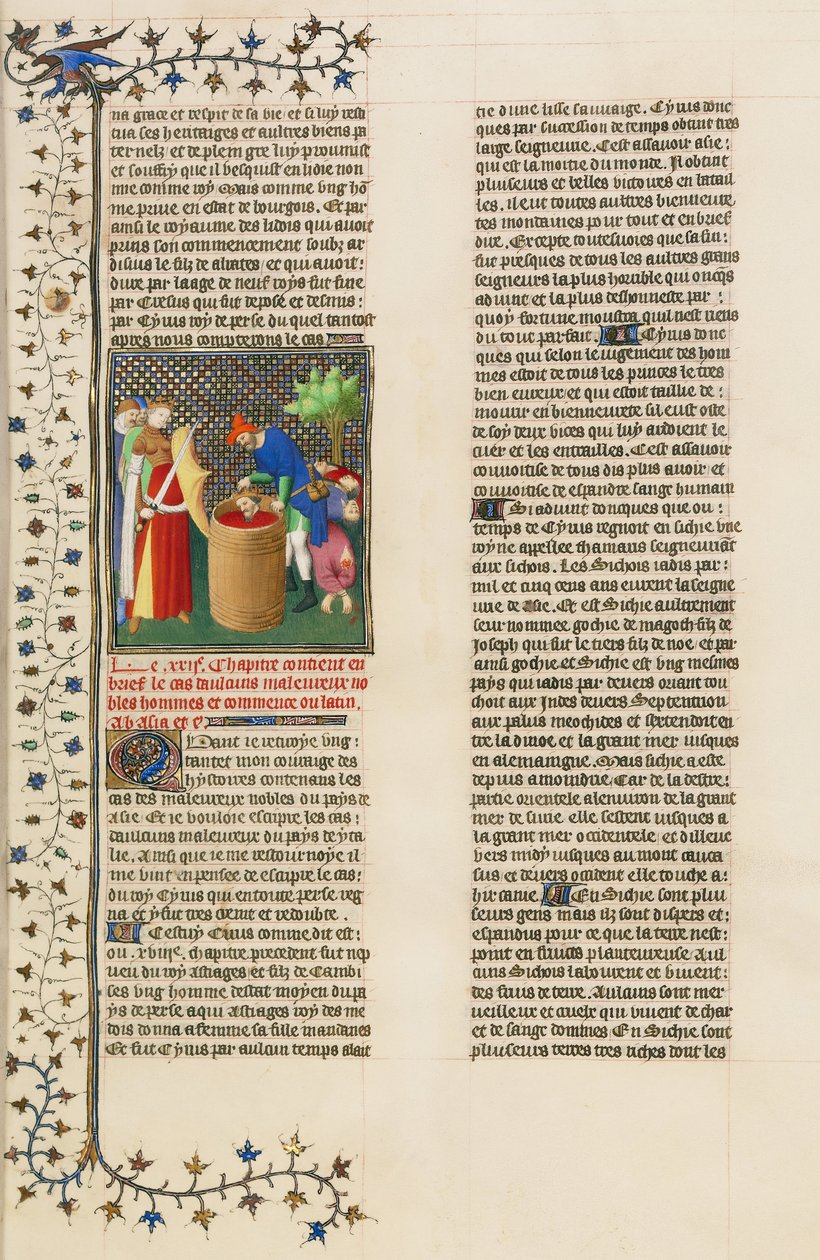 na grace et respit de sa vie et si luy resti
tua ses heritaiges et aultres biens pa
ternelz et de plein gre luy proumist
et souffry que il vesquist en lidie non
mie comme roy Mais comme vng hō
me prive en estat de bourgois. Et par
ainsi le royaume des lidois qui auoit
prins son commencement soubz ar
disius le filz de aliates et qui auoit :
dure par laage de neuf roys fut fine
par Cresus qui fut depose et desmis :
par Cyrus roy de perse du quel tantost
apres nous compterons le cas
Le .xxiie. Chapitre contient en
brief le cas daulcuns maleureux no
bles hommes et commence ou latin.
Ab Asia et c
Quant ie renuoye vng :
tantet mon couraige des
hystoires contenans les
cas des maleureux nobles du pays de
Asie Et ie vouloie escripre les cas :
daulcuns maleureux du pays de yta
lie. Ainsi que ie me restournoye il
me vint en pensee de escripre le cas :
du roy Cyrus qui en toute perse reg
na et y fut tres cremt et redoubte .
Cestuy Cirus comme dit est :
ou .xviiie. chapitre precedent fut nep
ueu du roy Astiages et filz de Cambi
ses vng homme destat moyen du pa
ys de perse a qui Astiages roy des me
dois donna a femme sa fille mandanes
Et fut Cyrus par aulcun temps alait
tie dune lisse sauuaige. Cyrus donc
ques par succession de temps obtint tres
large seigneurie. Cest assauoir asie :
qui est la moitie du monde. Il obtint
pluiseurs et belles victoires en batail
les. il eut toutes aultres bieneurete
tes mondaines pour tout et en brief
dire. Excepte toutesuoies que sa fin :
fut presques de tous les aultres grans
seigneurs la plus horrible qui oncqs
aduint et la plus deshonneste par :
quoy fortune moustra quil nest riens
du tout parfait. Cyrus donc
ques qui selon le iugement des hom
mes estoit de tous les princes le tres
bien eureux et qui estoit taillie de :
mourir en bieneurete sil eust oste
de soy deux vices qui luy ardoient le
cuer et les entrailles. Cest assauoir
couuoitise de tous dis plus auoir et
couuoitise de espandre sange humain
Si aduint doncques que ou :
temps de Cyrus regnoit en sichie vne
royne appellee thamaris seigneuriant
aux sichois. Les Sichois iadis par :
mil et cinq cens ans eurent la seigne
urie de Asie. Et est Sichie aultrement
seur nommee gochie de magoch filz de
Joseph qui fut le tiers filz de noe et par
ainsi gochie et Sichie est vng mesmes
pays qui iadis par deuers oriant tou
choit aux Indes deuers Septentrion
aux palus meothides et sextendoit en
tre la dinoe et la grant mer iusques
en alemaingne. Mais sichie a este
depuis amoindrie Car de la destre :
partie orientele alenuiron de la grant
mer de surie elle sestent iusques a
la grant mer occidentele et dilleuc
vers midy iusques au mont cauca
sus et deuers occident elle touche a :
hircanie. En Sichie sont plui
seurs gens mais ilz sont dispers et :
espandus pour ce que la terre nest :
point en fruicts planteureuse Aul
cuns Sichois labourent et viuent :
des fruis de terre. Aulcuns sont mer
ueilleux et cruelx qui viuent de char
et de sange dommes En Sichie sont
pluiseurs terres tres riches dont les